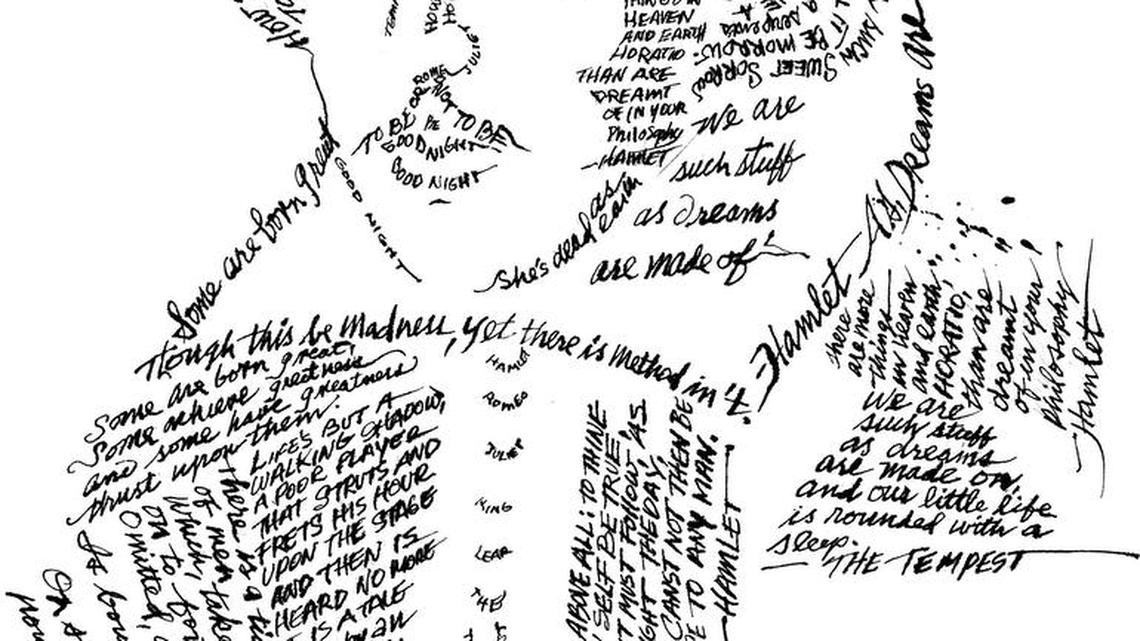 HEAVEN
AND EARTH
HORATIO
THAN ARE
DREAMT
OF IN YOUR
Philosophy
—HAMLET
SWEET SORROW
BE MORROW.
We are
such stuff
as dreams
are made of
ROME
JULIE
OR NOT
TO BE
TO BE
GOOD NIGHT
GOOD NIGHT
GOOD NIGHT
Some are born great
She's dead as
earth
Dreams are
—Hamlet
Though this be Madness, yet there is Method in 't.
Some are born great,
Some achieve greatness
and some have greatness
thrust upon them.
LIFE'S BUT A
WALKING SHADOW,
A POOR PLAYER
THAT STRUTS AND
FRETS HIS HOUR
UPON THE STAGE
AND THEN IS
HEARD NO MORE
IS A TALE
There is a
of men
which, take
on to
Omitted,
HAMLET
ROMEO
JULIET
KING
LEAR
ABOVE ALL: TO THINE
SELF BE TRUE,
IT MUST FOLLOW, AS
THE DAY
CANST NOT THEN BE
TO ANY MAN.
—HAMLET
there
are more
things
in heaven
and earth,
HORATIO,
than are
dreamt
of in your
philosophy
Hamlet
We are
such stuff
as dreams
are made on,
and our little life
is rounded with a
sleep.
—THE TEMPEST